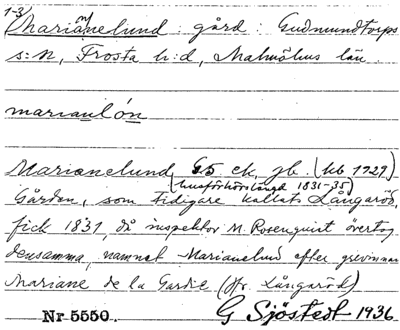 1-3) Marianelund : gård : Gudmundtorps
s:n, Frosta h:d, Malmöhus län
marianlón
Marianelund G5 ek, jb. (kb 1929)
(husförhörslängd 1831-35)
Gården, som tidigare kallats Långaröd,
fick 1831, då inspektor M. Rosenquist övertog
densamma, namnet Marianelund efter grevinnan
Mariane de la Gardie (jfr. Långaröd)
Nr 5550. G Sjöstedt 1936